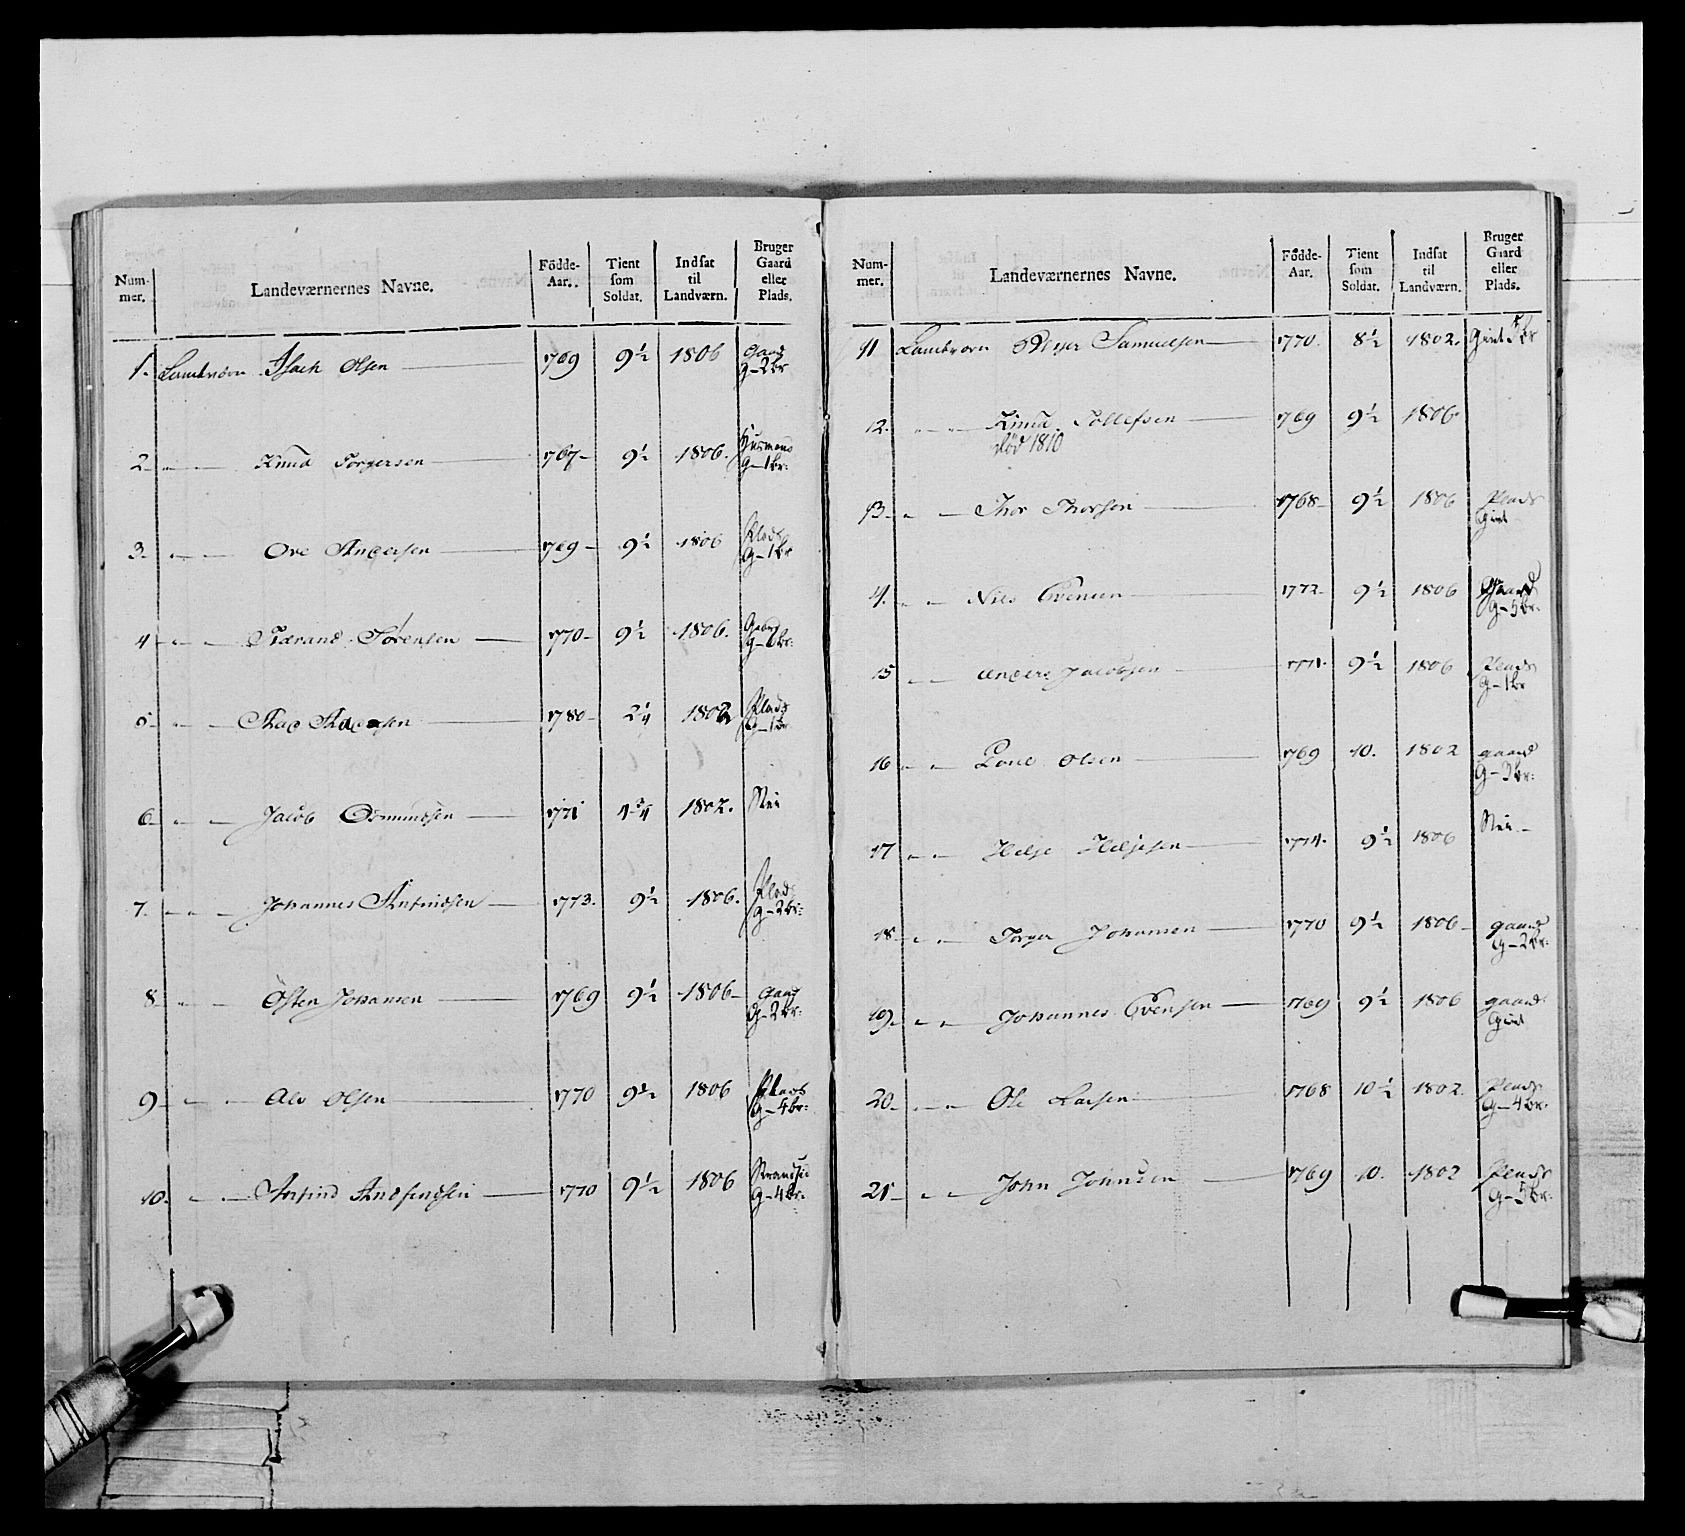 Num-mer. Landeværnernes Navne. Födde-Aar. Tient som Soldat. Indsat til Landværn. Bruger Gaard eller Plads.
1. Landværn Isach Olsen 1769 9½ 1806 Gaard
G-2br
2 " Knud Torgersen 1767 9½ 1806. Huusmand
G-1br:
3. " Ove Andersen 1769 9½ 1806 Plads
G-1br
4 " Tarand Sörensen 1770 9½ 1806.
5 " 1780 2¼ 1802 Plads
G-1br
6 " Jacob Osmundsen 1771 4¾ 1802. Nei
7. " Johannes 1773. 9½ 1806. Plads
G-2br:
8 " Östen Johansen 1769 9½ 1806 Gaard
G-2br:
9 " Olsen 1770 9½ 1806 Plads
G-4br:
10. " 1770 9½ 1806
G-4br:
Num-mer. Landeværnernes Navne. Födde-Aar. Tient som Soldat. Indsat til Landværn. Bruger Gaard eller Plads.
11 Landværn Samuelsen 1770. 8½ 1802. Givt
12. " Knud Tollefsen 1769 9½ 1806
död 1810
13 " Thor Thorsen 1768 9½ 1806 Plads
Givt
14. " Nils Evensen 1772 9½ 1806 Gaard
G-5br:
15 " Anders Jacobsen 1771. 9½ 1806 Plads
G-1br
16 " Olsen 1769 10. 1802 gaard
G-3br:
17 " Helje Heljesen 1774. 9½ 1806 Nei
18 " Torger Johansen 1770 9½ 1806 gaard
G-2br:
19 " Johannes Evensen 1769 9½ 1806 gaard
Givt
20 " Ole Larsen 1768 10½ 1802. Plads
G-4br:
21 " John Johnsen 1769 10. 1802 Plads
G-5br: